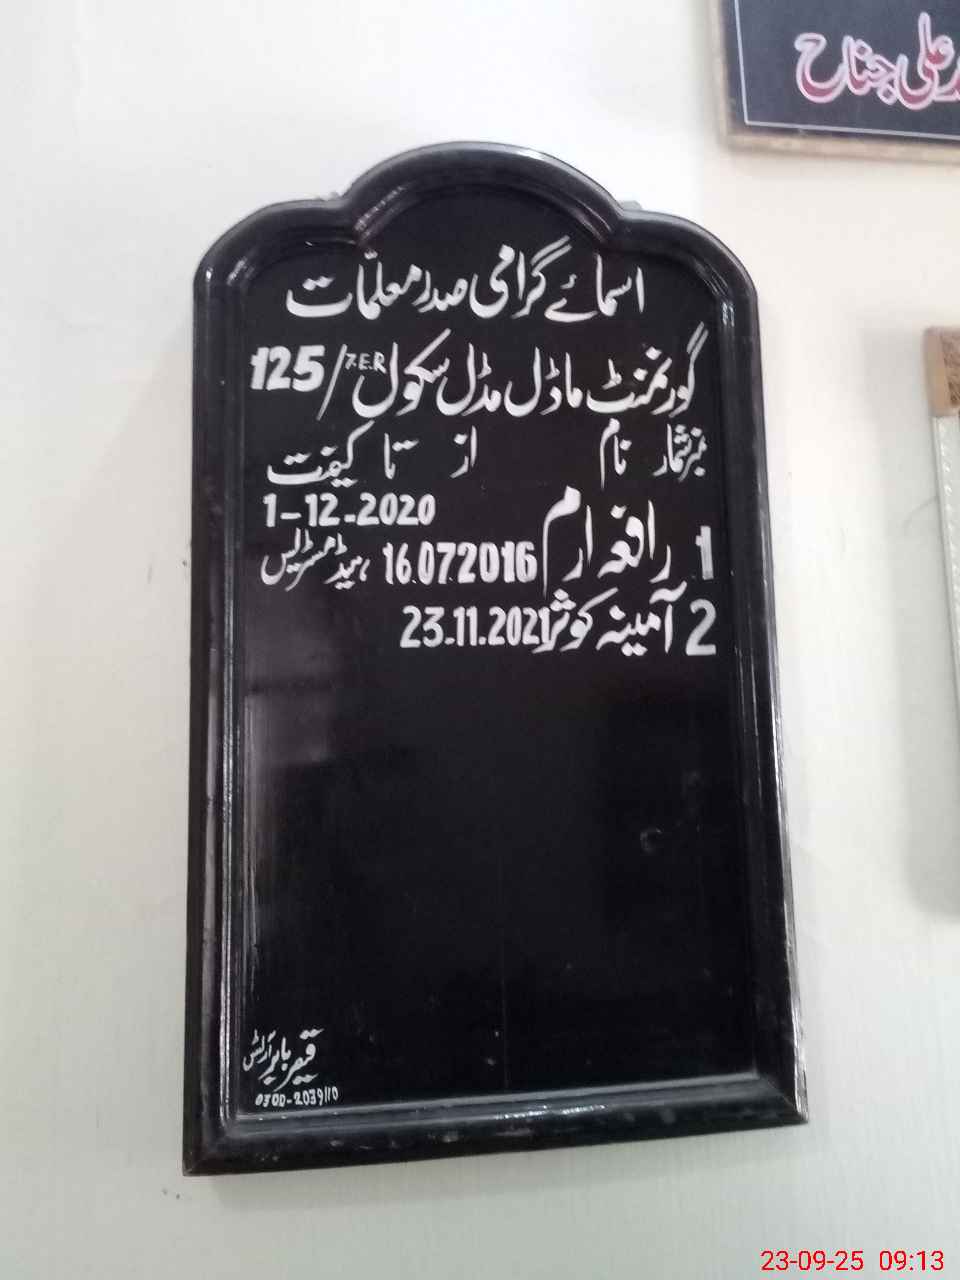 علی جناح
اسمائے گرامی صدر معلمّات
گورنمنٹ ماڈل مڈل سکول 125/7.E.R
نمبر شمار نام از تا کیفیت
1-12-2020
1 رافعہ ارم 16.07.2016 ہیڈمسٹریس
2 آمینہ کوثر 23.11.2021
قیصر بابر آرٹس
0300-2039110
23-09-25 09:13